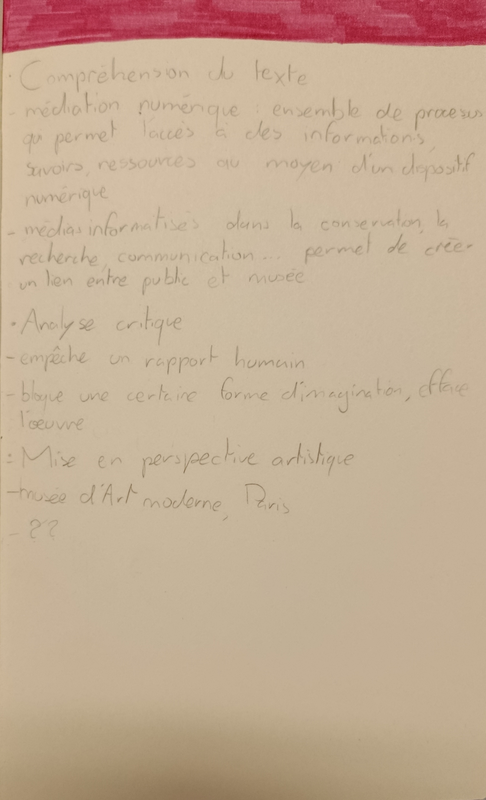 · Compréhension du texte
- médiation numérique : ensemble de processus
qui permet l'accès à des informations,
savoirs, ressources au moyen d'un dispositif
numérique
- médias informatisés dans la conservation, la
recherche, communication... permet de créer
un lien entre public et musée
· Analyse critique
- empêche un rapport humain
- bloque une certaine forme d'imagination, efface
l'œuvre
: Mise en perspective artistique
- musée d'Art moderne, Paris
- ??